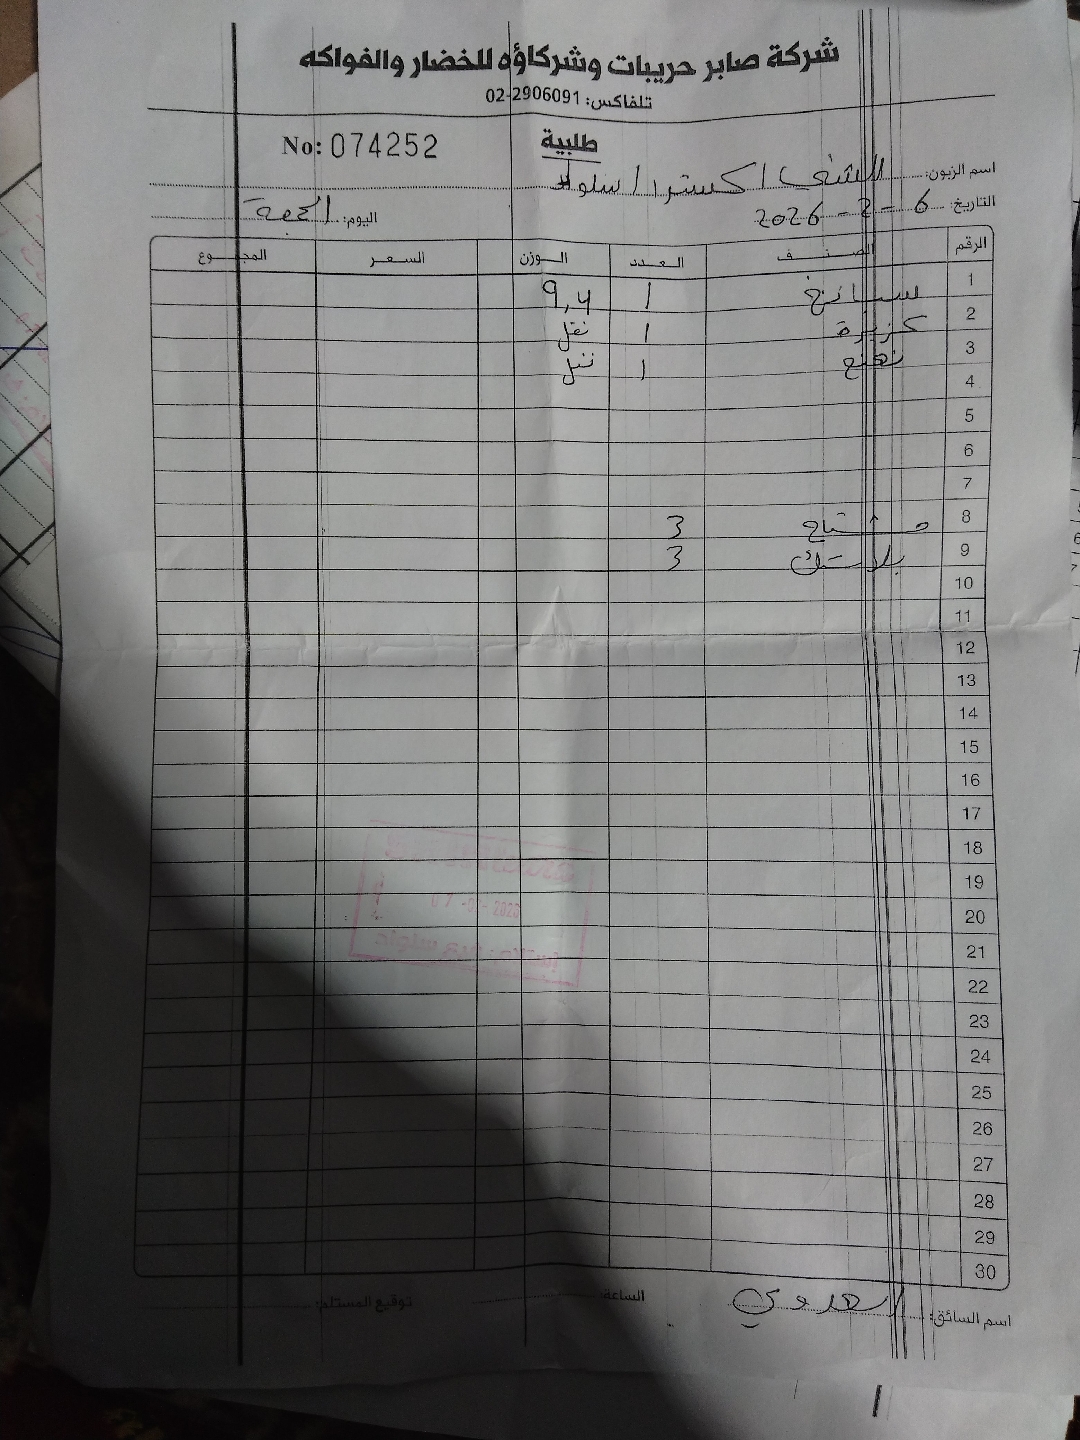 شركة صابر حريبات وشركاؤه للخضار والفواكه
تلفاكس: 02-2906091
طلبية
No: 074252
اسم الزبون: الشني اكسترا / سلواد
التاريخ: 6 - 2 - 2026 اليوم: الجمعة
الرقم الصنف العدد الوزن السعر المجموع
1 سبانخ 1 9,4
2 كزبرة 1 نقل
3 نعنع 1
4
5
6
7
8 مشتاح 3
9 بلاستك 3
10
11
12
13
14
15
16
17
18
19
20
21
22
23
24
25
26
27
28
29
30
اسم السائق: العدوي الساعة: توقيع المستلم: